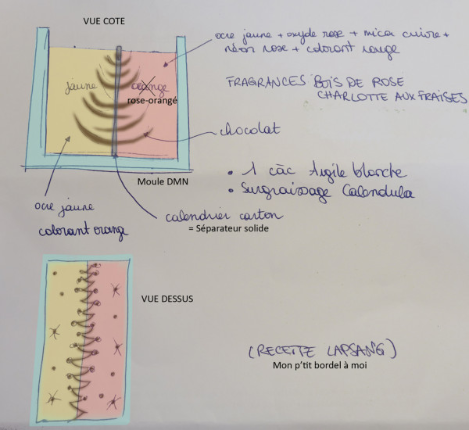 VUE COTE
ocre jaune + oxyde rose + mica cuivre +
néon rose + colorant rouge
jaune
orange
rose-orangé
FRAGRANCES BOIS DE ROSE
CHARLOTTE AUX FRAISES
chocolat
Moule DMN
• 1 càc Argile blanche
• Surgraissage Calendula
ocre jaune
colorant orange
calendrier carton
= Séparateur solide
VUE DESSUS
(RECETTE LAPSANG)
Mon p'tit bordel à moi